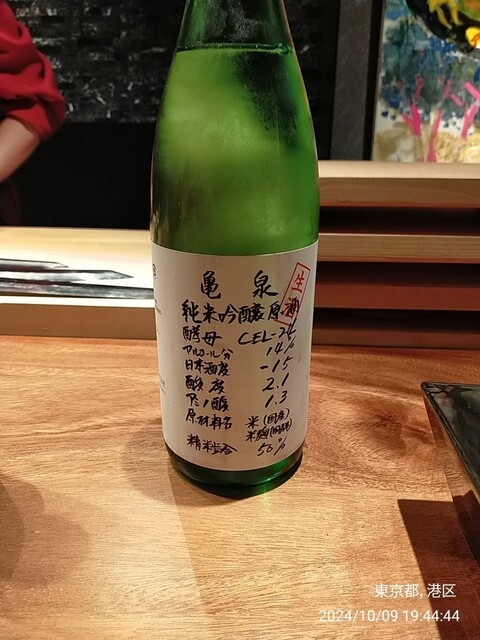 亀泉
生酒
純米吟醸原酒
酵母 CEL-24
アルコール分 14%
日本酒度 -15
酸度 2.1
アミノ酸 1.3
原材料名 米(国産)
米麹(国産米)
精米歩合 50%
東京都,港区
2024/10/09 19:44:44